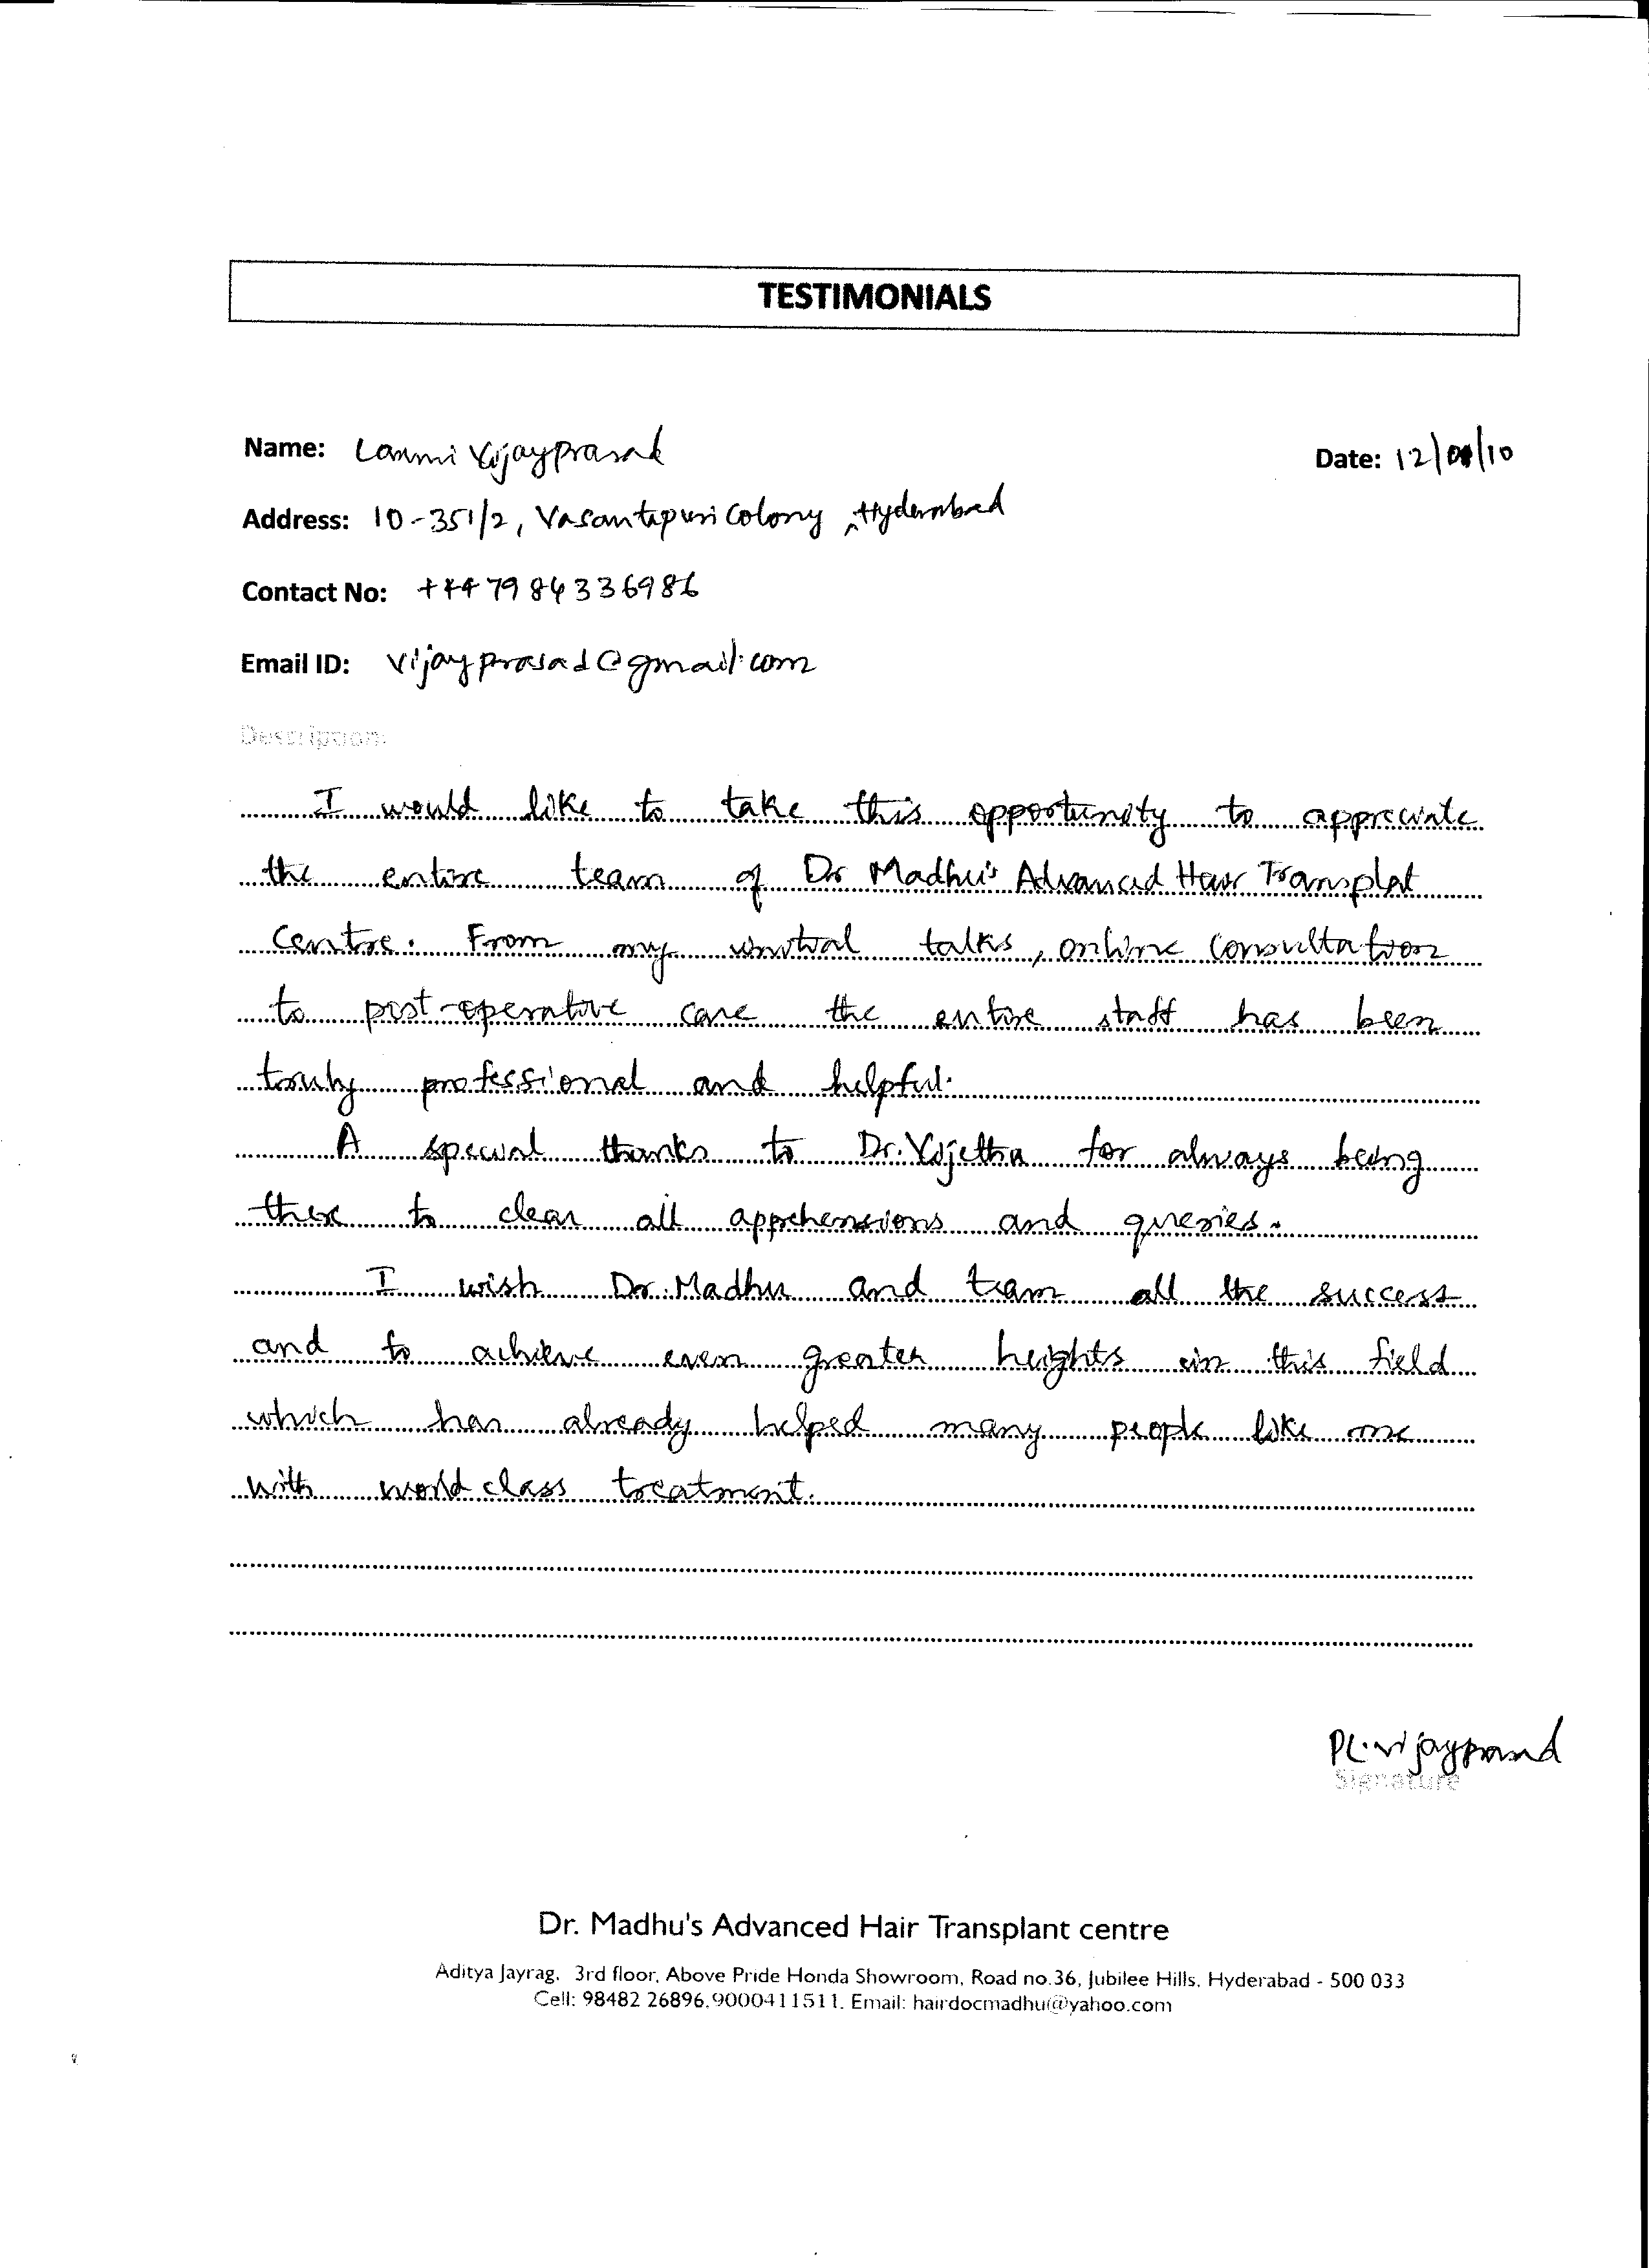 TESTIMONIALS
Name: Laxmi Vijayprasad
Date: 12/ /10
Address: 10-351/2, Vasantapuri Colony, Hyderabad
Contact No: +447984336986
Email ID: vijayprasad@gmail.com
Description:
I would like to take this opportunity to appreciate
the entire team of Dr Madhu's Advanced Hair Transplat
Centre. From my initial talks, online consultation
to post-operative care the entire staff has been
truly professional and helpful.
A special thanks to Dr. Vijetha for always being
there to clear all apprehensions and queries.
I wish Dr. Madhu and team all the success
and to achieve even greater heights in this field
which has already helped many people like me
with world class treatment.
PL.Vijayprasad
Signature
Dr. Madhu's Advanced Hair Transplant centre
Aditya Jayrag, 3rd floor, Above Pride Honda Showroom, Road no.36, Jubilee Hills, Hyderabad - 500 033
Cell: 98482 26896,9000411511. Email: hairdocmadhu@yahoo.com